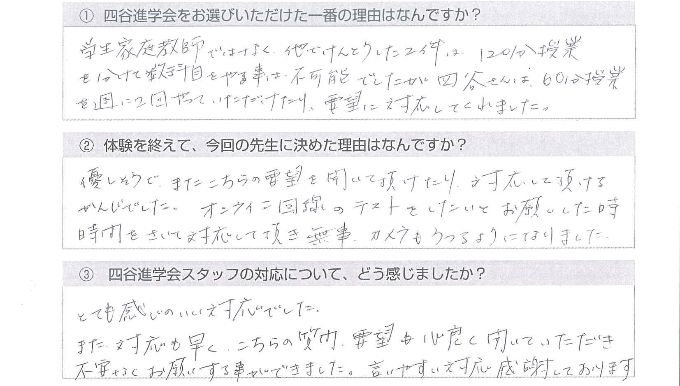 ① 四谷進学会をお選びいただけた一番の理由はなんですか？
学生家庭教師ではなく、他でけんとうした2件は、120分授業
を分けて数科目をやる事は不可能でしたが四谷さんは、60分授業
を週に2回やっていただけたり、要望に対応してくれました。
② 体験を終えて、今回の先生に決めた理由はなんですか？
優しそうで、またこちらの要望を聞いて頂けたり、対応して頂ける
かんじでした。オンライン回線のテストをしたいとお願いした時
時間をさいて対応して頂き無事、カメラもうつるようになりました。
③ 四谷進学会スタッフの対応について、どう感じましたか？
とても感じのいい対応でした。
また、対応も早く、こちらの質問、要望も心良く聞いていただき
不安なくお願いする事ができました。言いやすい対応感謝しております